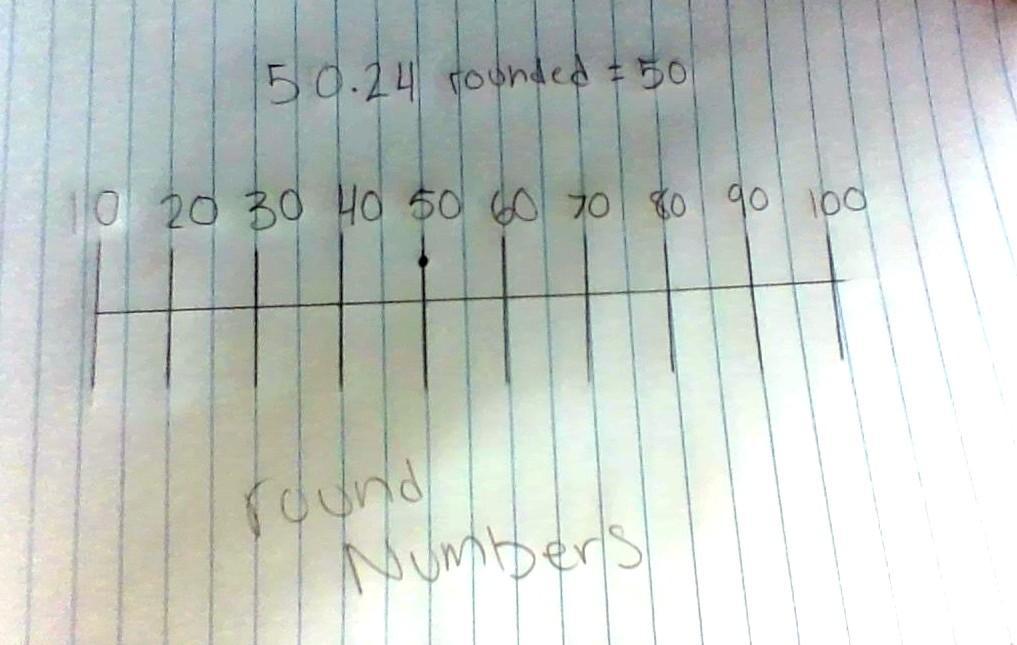 50.24 rounded = 50
10 20 30 40 50 60 70 80 90 100
round
Numbers